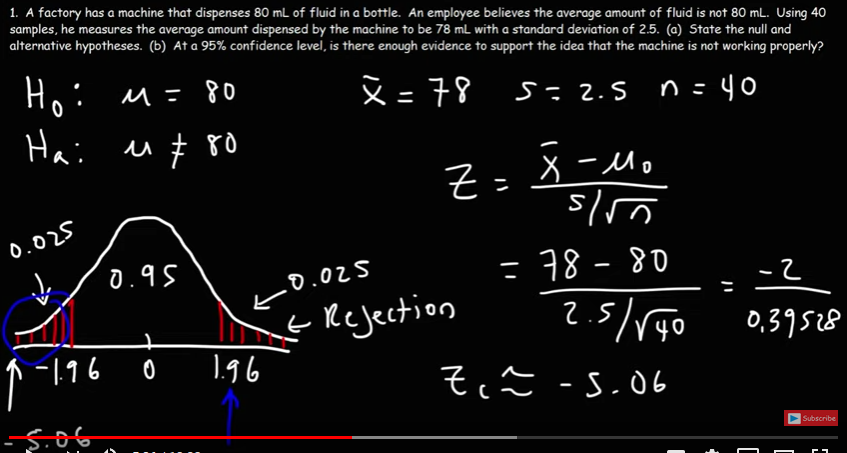 1. A factory has a machine that dispenses 80 mL of fluid in a bottle. An employee believes the average amount of fluid is not 80 mL. Using 40
samples, he measures the average amount dispensed by the machine to be 78 mL with a standard deviation of 2.5. (a) State the null and
alternative hypotheses. (b) At a 95% confidence level, is there enough evidence to support the idea that the machine is not working properly?
H₀: μ = 80
x̄ = 78 s = 2.5 n = 40
Hₐ: μ ≠ 80
Z = (x̄ - μ₀) / (s/√n)
= (78 - 80) / (2.5/√40) = -2 / 0.39528
Z꜀ ≈ -5.06
0.025
0.95
0.025
← Rejection
-1.96 0 1.96
-5.06
Subscribe